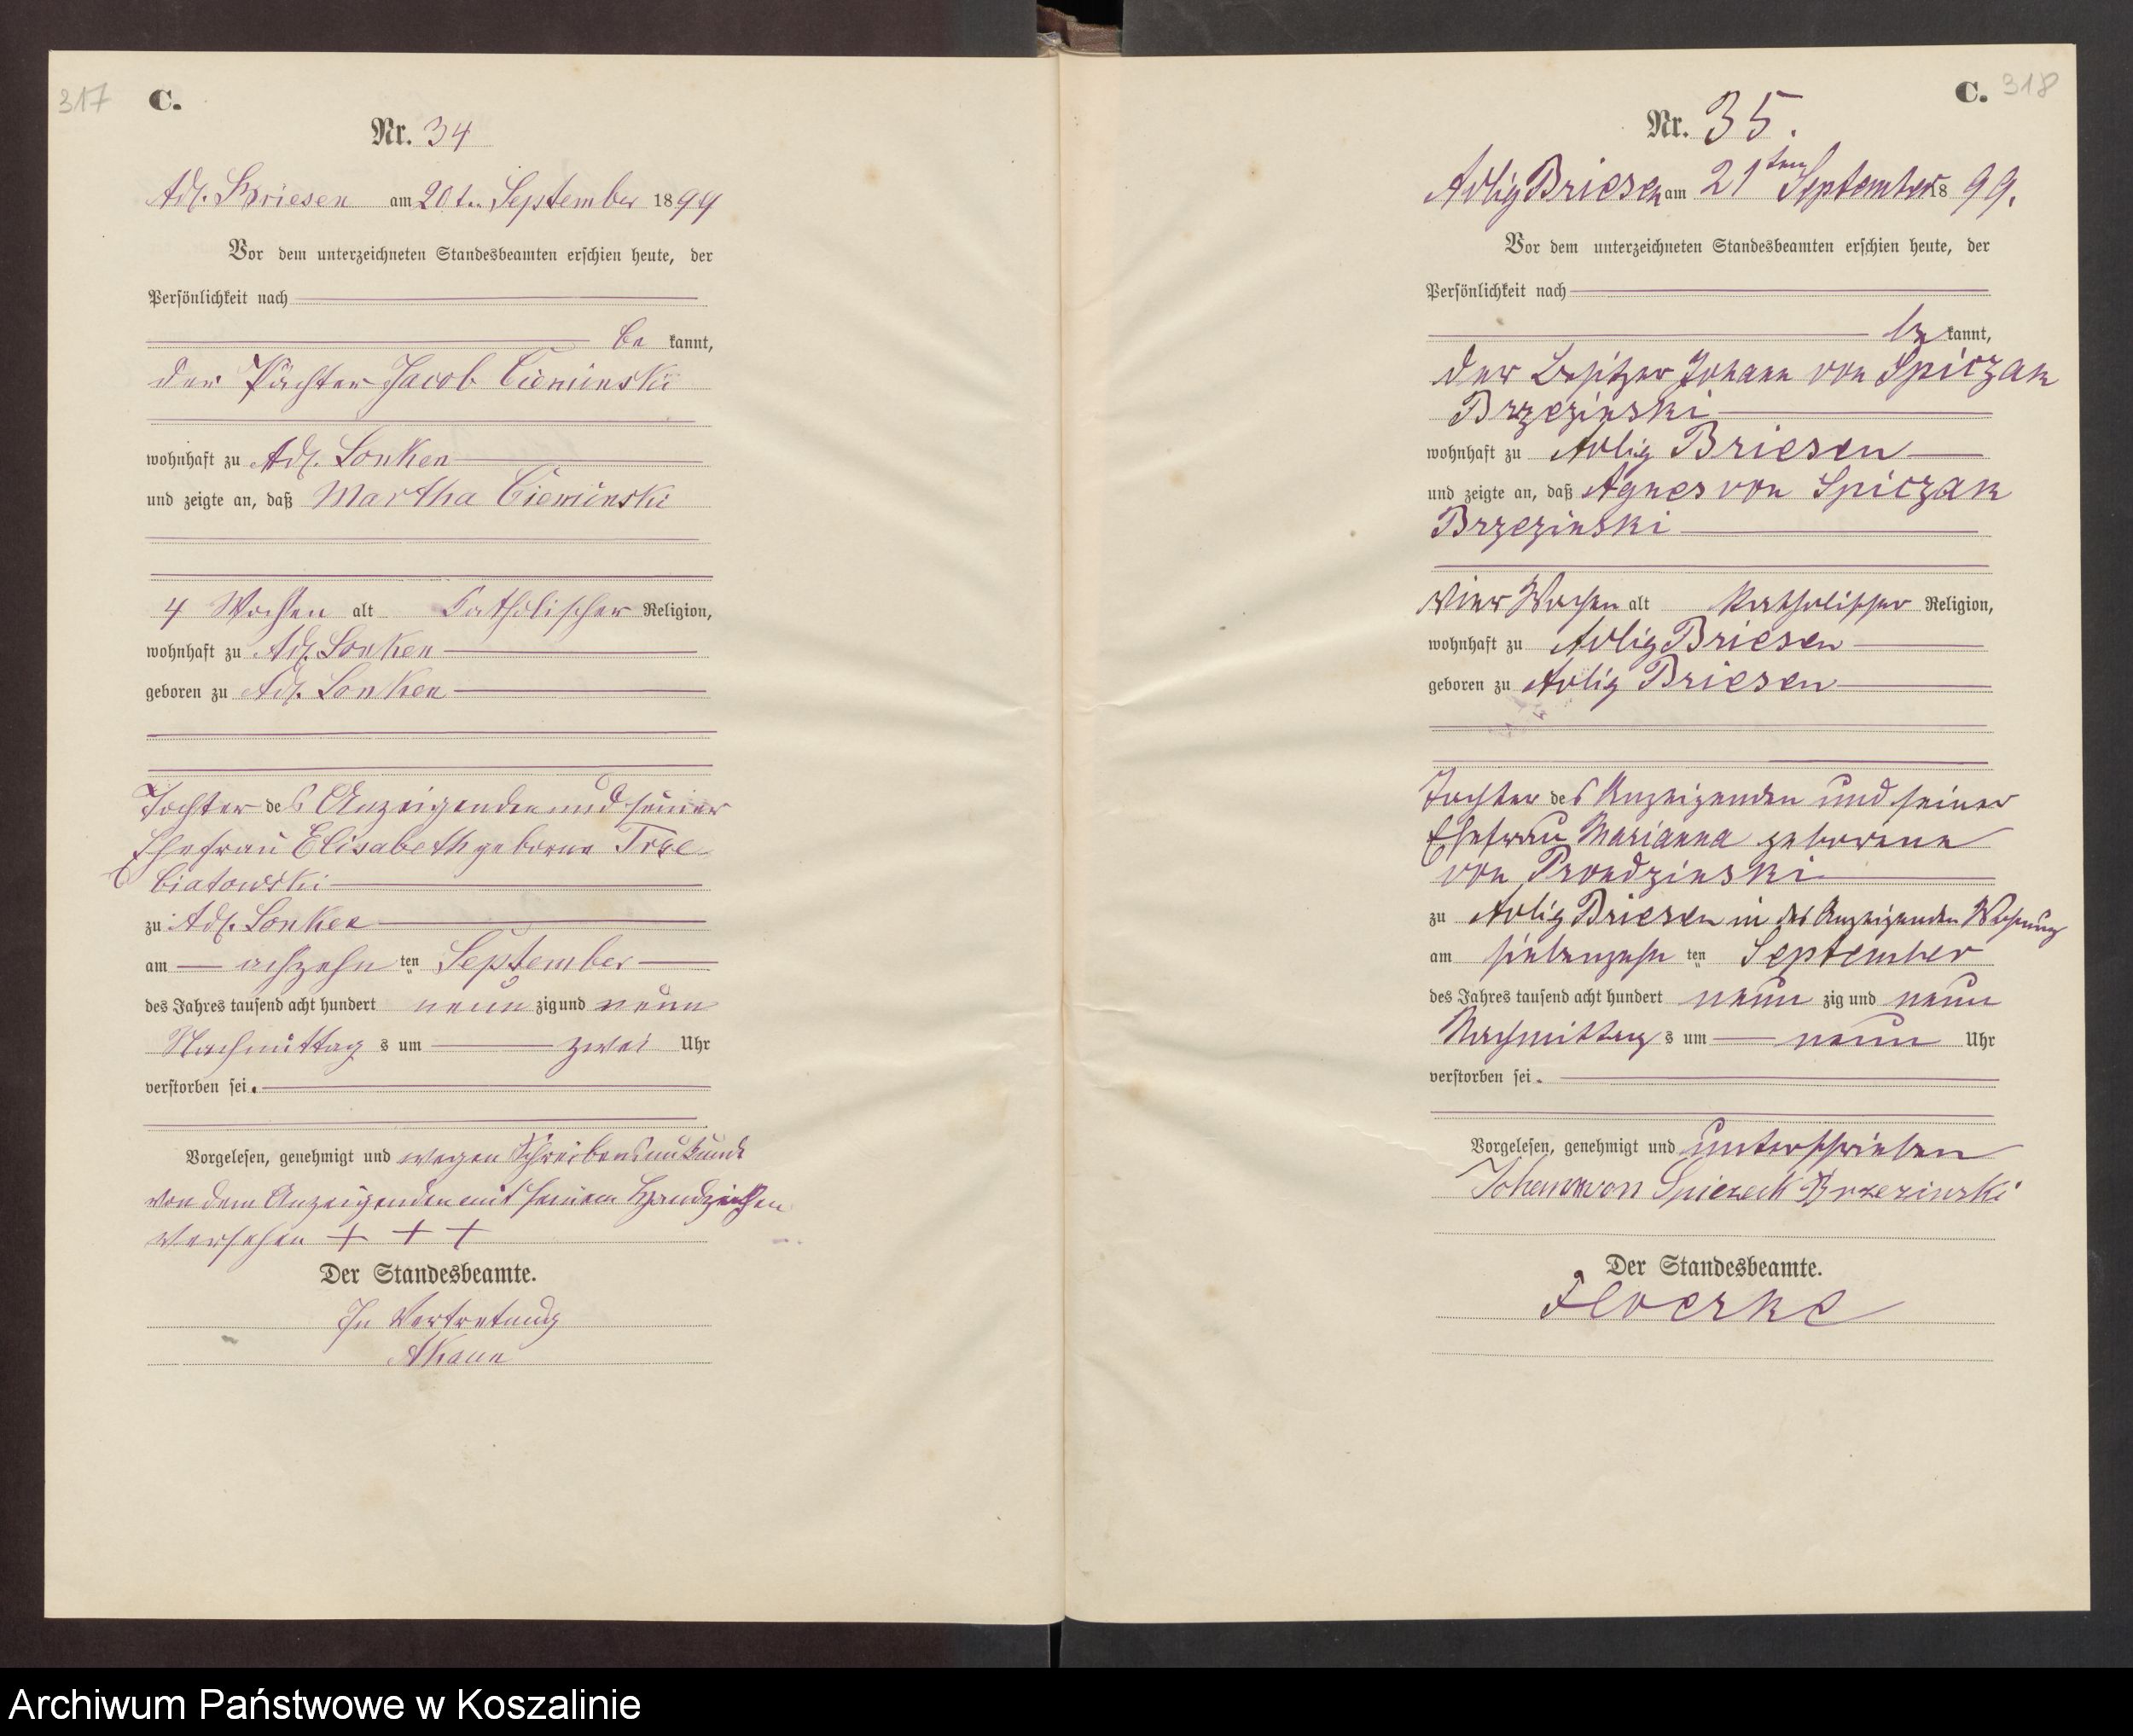 317
C.
Nr. 34
Adl. Briesen am 20ten September 1899
Vor dem unterzeichneten Standesbeamten erschien heute, der
Persönlichkeit nach
be kannt,
der Pächter Jacob Cieminski
wohnhaft zu Adl. Lonken
und zeigte an, daß Martha Cieminski
4 Wochen alt katholischer Religion,
wohnhaft zu Adl. Lonken
geboren zu Adl. Lonken
Tochter des Anzeigenden und seiner
Ehefrau Elisabeth geborne Trze
biatowski
zu Adl. Lonken
am achzehn ten September
des Jahres tausend acht hundert neun zig und neun
Nachmittag s um zwei Uhr
verstorben sei.
Vorgelesen, genehmigt und wegen Schreibensunkunde
von dem Anzeigenden mit seinem Handzeichen
versehen + + +
Der Standesbeamte.
In Vertretung
318
C.
Nr. 35.
Adlig Briesen am 21ten September 1899.
Vor dem unterzeichneten Standesbeamten erschien heute, der
Persönlichkeit nach
be kannt,
der Besitzer Johann von Spiczak
Brzezinski
wohnhaft zu Adlig Briesen
und zeigte an, daß Agnes von Spiczak
Brzezinski
vier Wochen alt katholischer Religion,
wohnhaft zu Adlig Briesen
geboren zu Adlig Briesen
Tochter des Anzeigenden und seiner
Ehefrau Marianna geborene
von Prondzinski
zu Adlig Briesen in des Anzeigenden Wohnung
am siebenzehn ten September
des Jahres tausend acht hundert neun zig und neun
Nachmittag s um neun Uhr
verstorben sei.
Vorgelesen, genehmigt und unterschrieben
Johann von Spiczack Brzezinski
Der Standesbeamte.
Archiwum Państwowe w Koszalinie